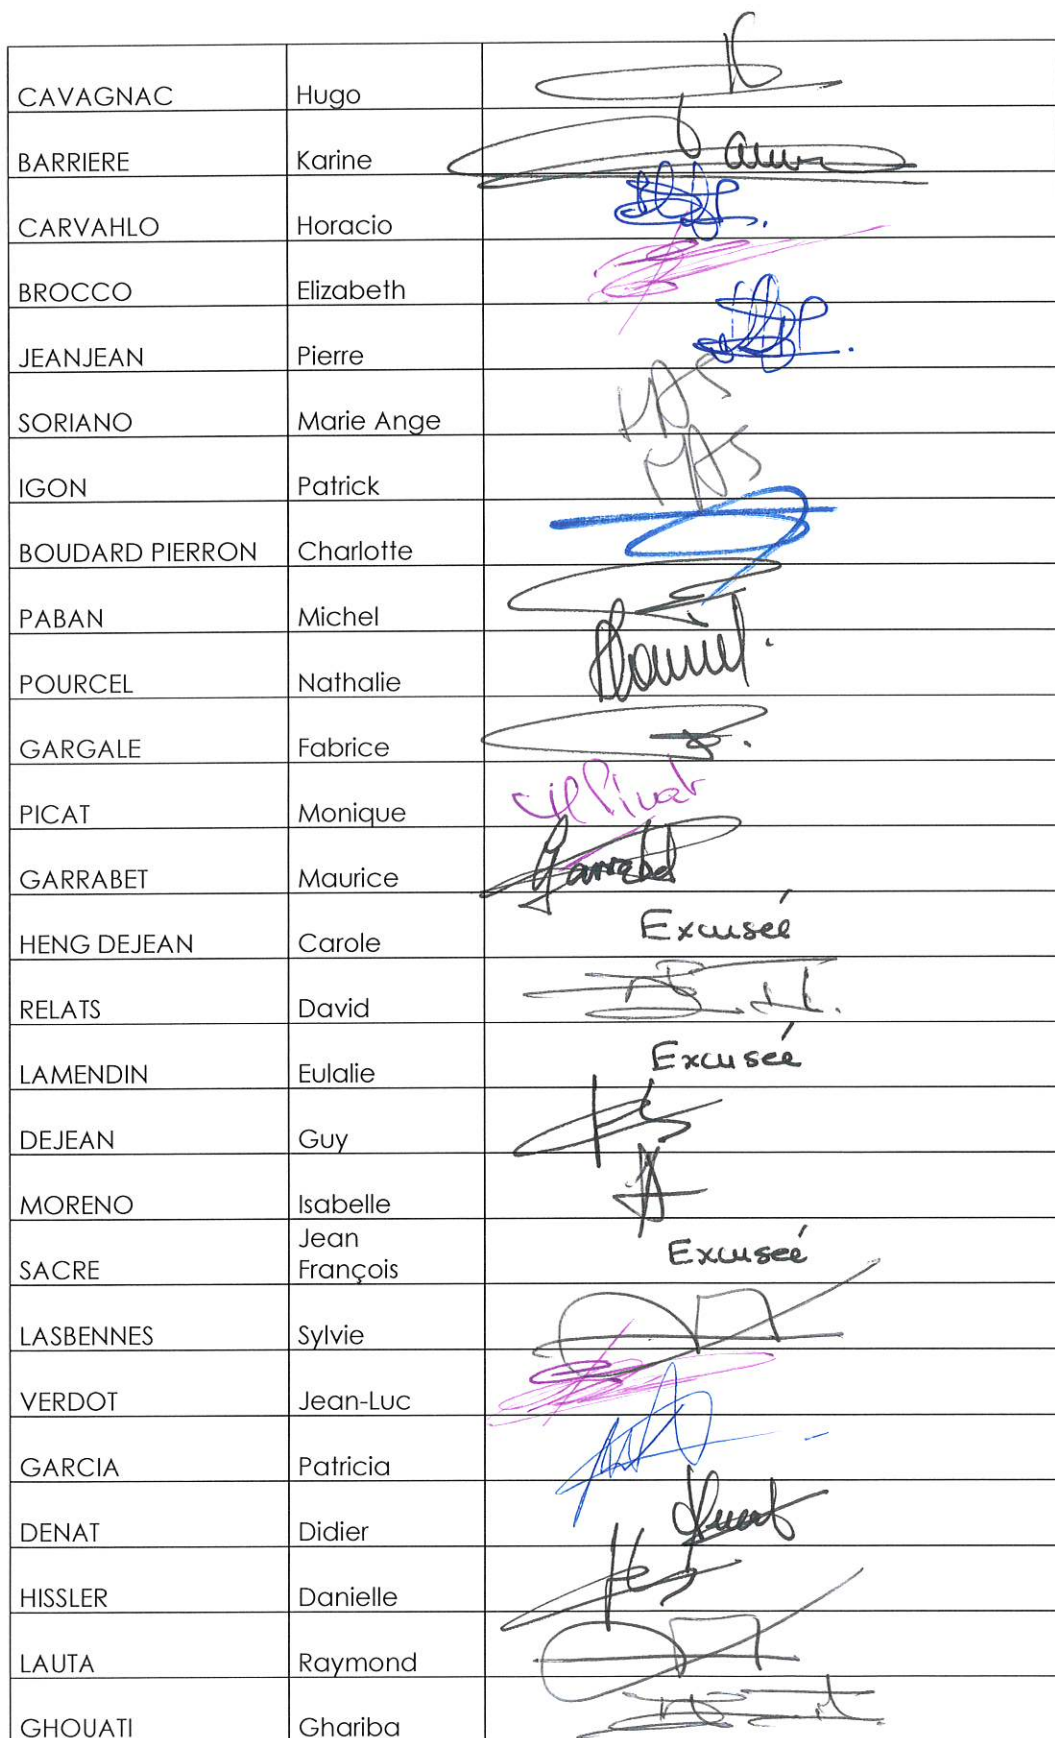 CAVAGNAC Hugo
BARRIERE Karine
CARVAHLO Horacio
BROCCO Elizabeth
JEANJEAN Pierre
SORIANO Marie Ange MAS
IGON Patrick MAS
BOUDARD PIERRON Charlotte
PABAN Michel
POURCEL Nathalie
GARGALE Fabrice
PICAT Monique Picat
GARRABET Maurice Garrabet
HENG DEJEAN Carole Excusée
RELATS David
LAMENDIN Eulalie Excusée
DEJEAN Guy
MORENO Isabelle
SACRE Jean
François Excuseé
LASBENNES Sylvie
VERDOT Jean-Luc
GARCIA Patricia
DENAT Didier
HISSLER Danielle
LAUTA Raymond
GHOUATI Ghariba